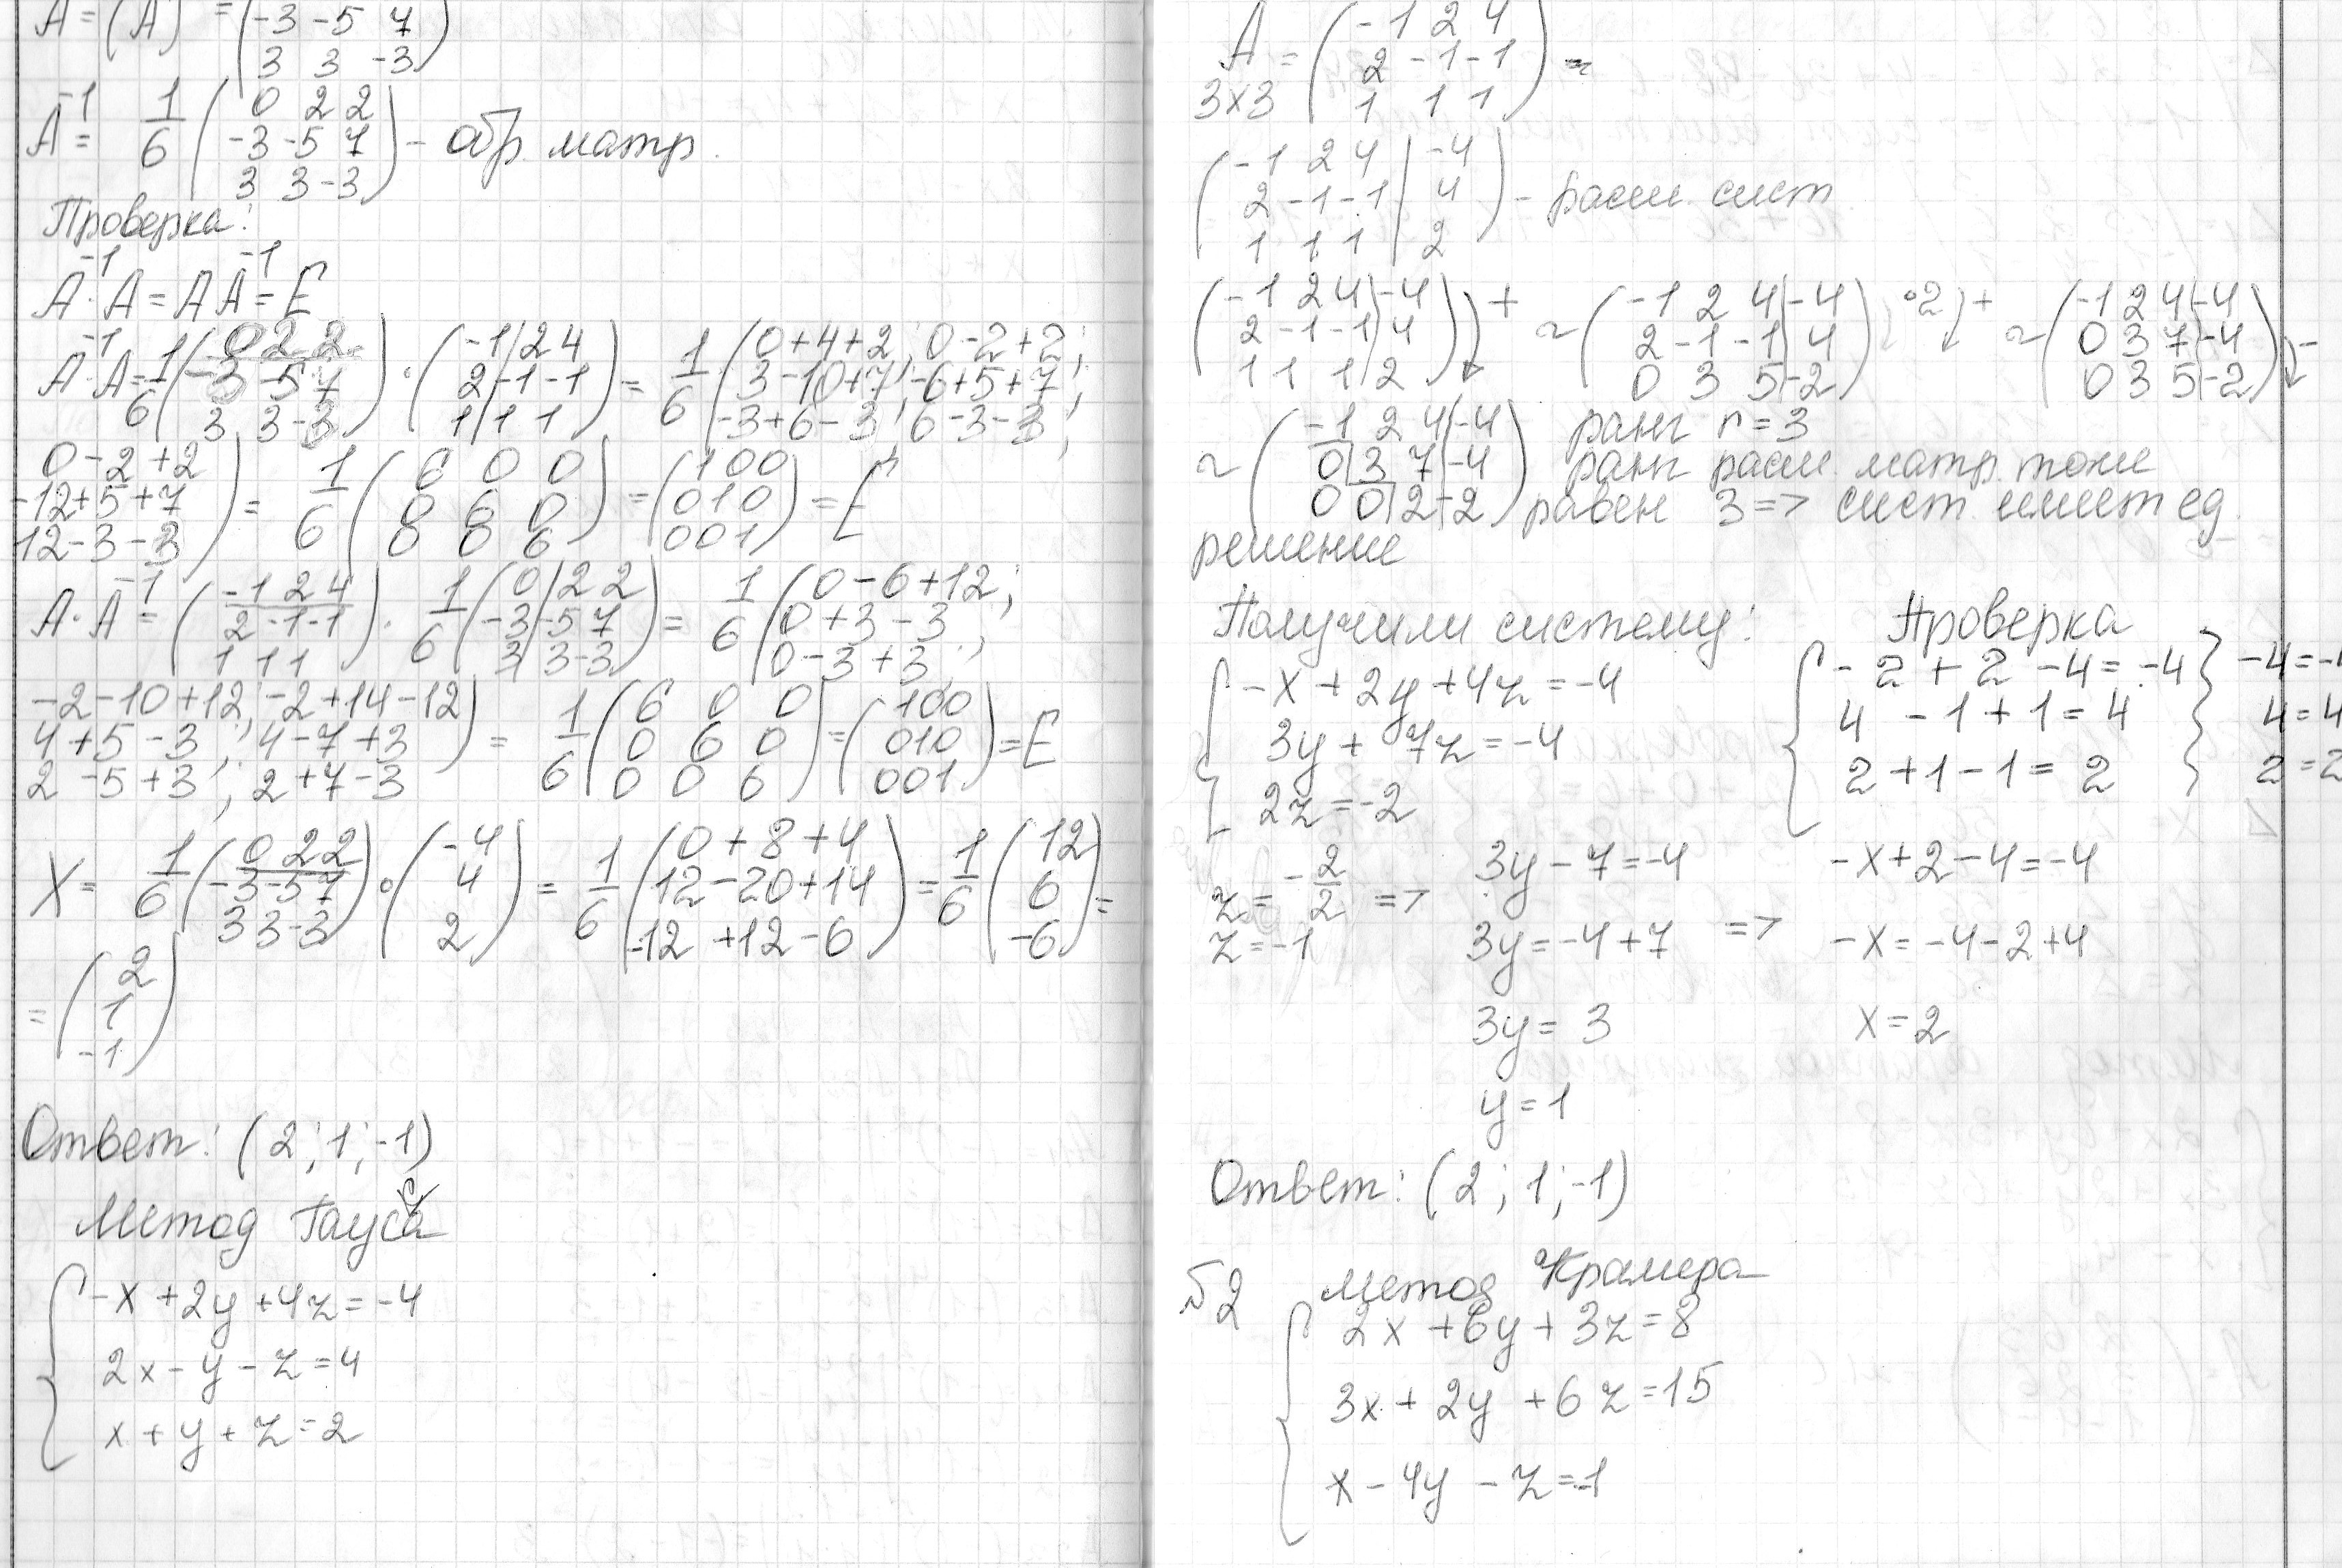 A = (A) = (-3 -5 7
3 3 -3)
A⁻¹ = 1/6 (0 2 2
-3 -5 7
3 3 -3) - обр. матр.
Проверка:
A⁻¹·A = A A⁻¹ = E
A⁻¹·A = 1/6 (0 2 2 / -3 -5 7 / 3 3 -3) · (-1 2 4 / 2 -1 -1 / 1 1 1) = 1/6 (0+4+2; 0-2+2; / 3-10+7; -6+5+7; / -3+6-3; 6-3-3;
0-2+2 / -12+5+7 / 12-3-3) = 1/6 (6 0 0 / 0 6 0 / 0 0 6) = (100 / 010 / 001) = E
A·A⁻¹ = (-1 2 4 / 2 -1 -1 / 1 1 1) · 1/6 (0 2 2 / -3 -5 7 / 3 3 -3) = 1/6 (0-6+12; / 0+3-3; / 0-3+3;
-2-10+12; -2+14-12 / 4+5-3; 4-7+3 / 2-5+3; 2+7-3) = 1/6 (6 0 0 / 0 6 0 / 0 0 6) = (100 / 010 / 001) = E
X = 1/6 (0 2 2 / -3 -5 7 / 3 3 -3) · (-4 / 4 / 2) = 1/6 (0+8+4 / 12-20+14 / -12+12-6) = 1/6 (12 / 6 / -6) =
= (2 / 1 / -1)
Ответ: (2; 1; -1)
Метод Гаусса
{ -x + 2y + 4z = -4
2x - y - z = 4
x + y + z = 2
A 3x3 = (-1 2 4 / 2 -1 -1 / 1 1 1) ~
(-1 2 4 | -4 / 2 -1 -1 | 4 / 1 1 1 | 2) - расш. сист
(-1 2 4 | -4 / 2 -1 -1 | 4 / 1 1 1 | 2) + ~ (-1 2 4 | -4 / 2 -1 -1 | 4 / 0 3 5 | -2) ·2 + ~ (-1 2 4 | -4 / 0 3 7 | -4 / 0 3 5 | -2) -
~ (-1 2 4 | -4 / 0 3 7 | -4 / 0 0 2 | -2)
ранг r = 3
ранг расш. матр. тоже
равен 3 => сист. имеет ед.
решение
Получили систему:
{ -x + 2y + 4z = -4
3y + 7z = -4
2z = -2
Проверка
{ -2 + 2 - 4 = -4 } -4 = -4
4 - 1 + 1 = 4 4 = 4
2 + 1 - 1 = 2 2 = 2
z = -2/2 => 3y - 7 = -4 -x + 2 - 4 = -4
z = -1 3y = -4 + 7 => -x = -4 - 2 + 4
3y = 3 x = 2
y = 1
Ответ: (2; 1; -1)
№2 Метод Крамера
{ 2x + 6y + 3z = 8
3x + 2y + 6z = 15
x - 4y - z = -1